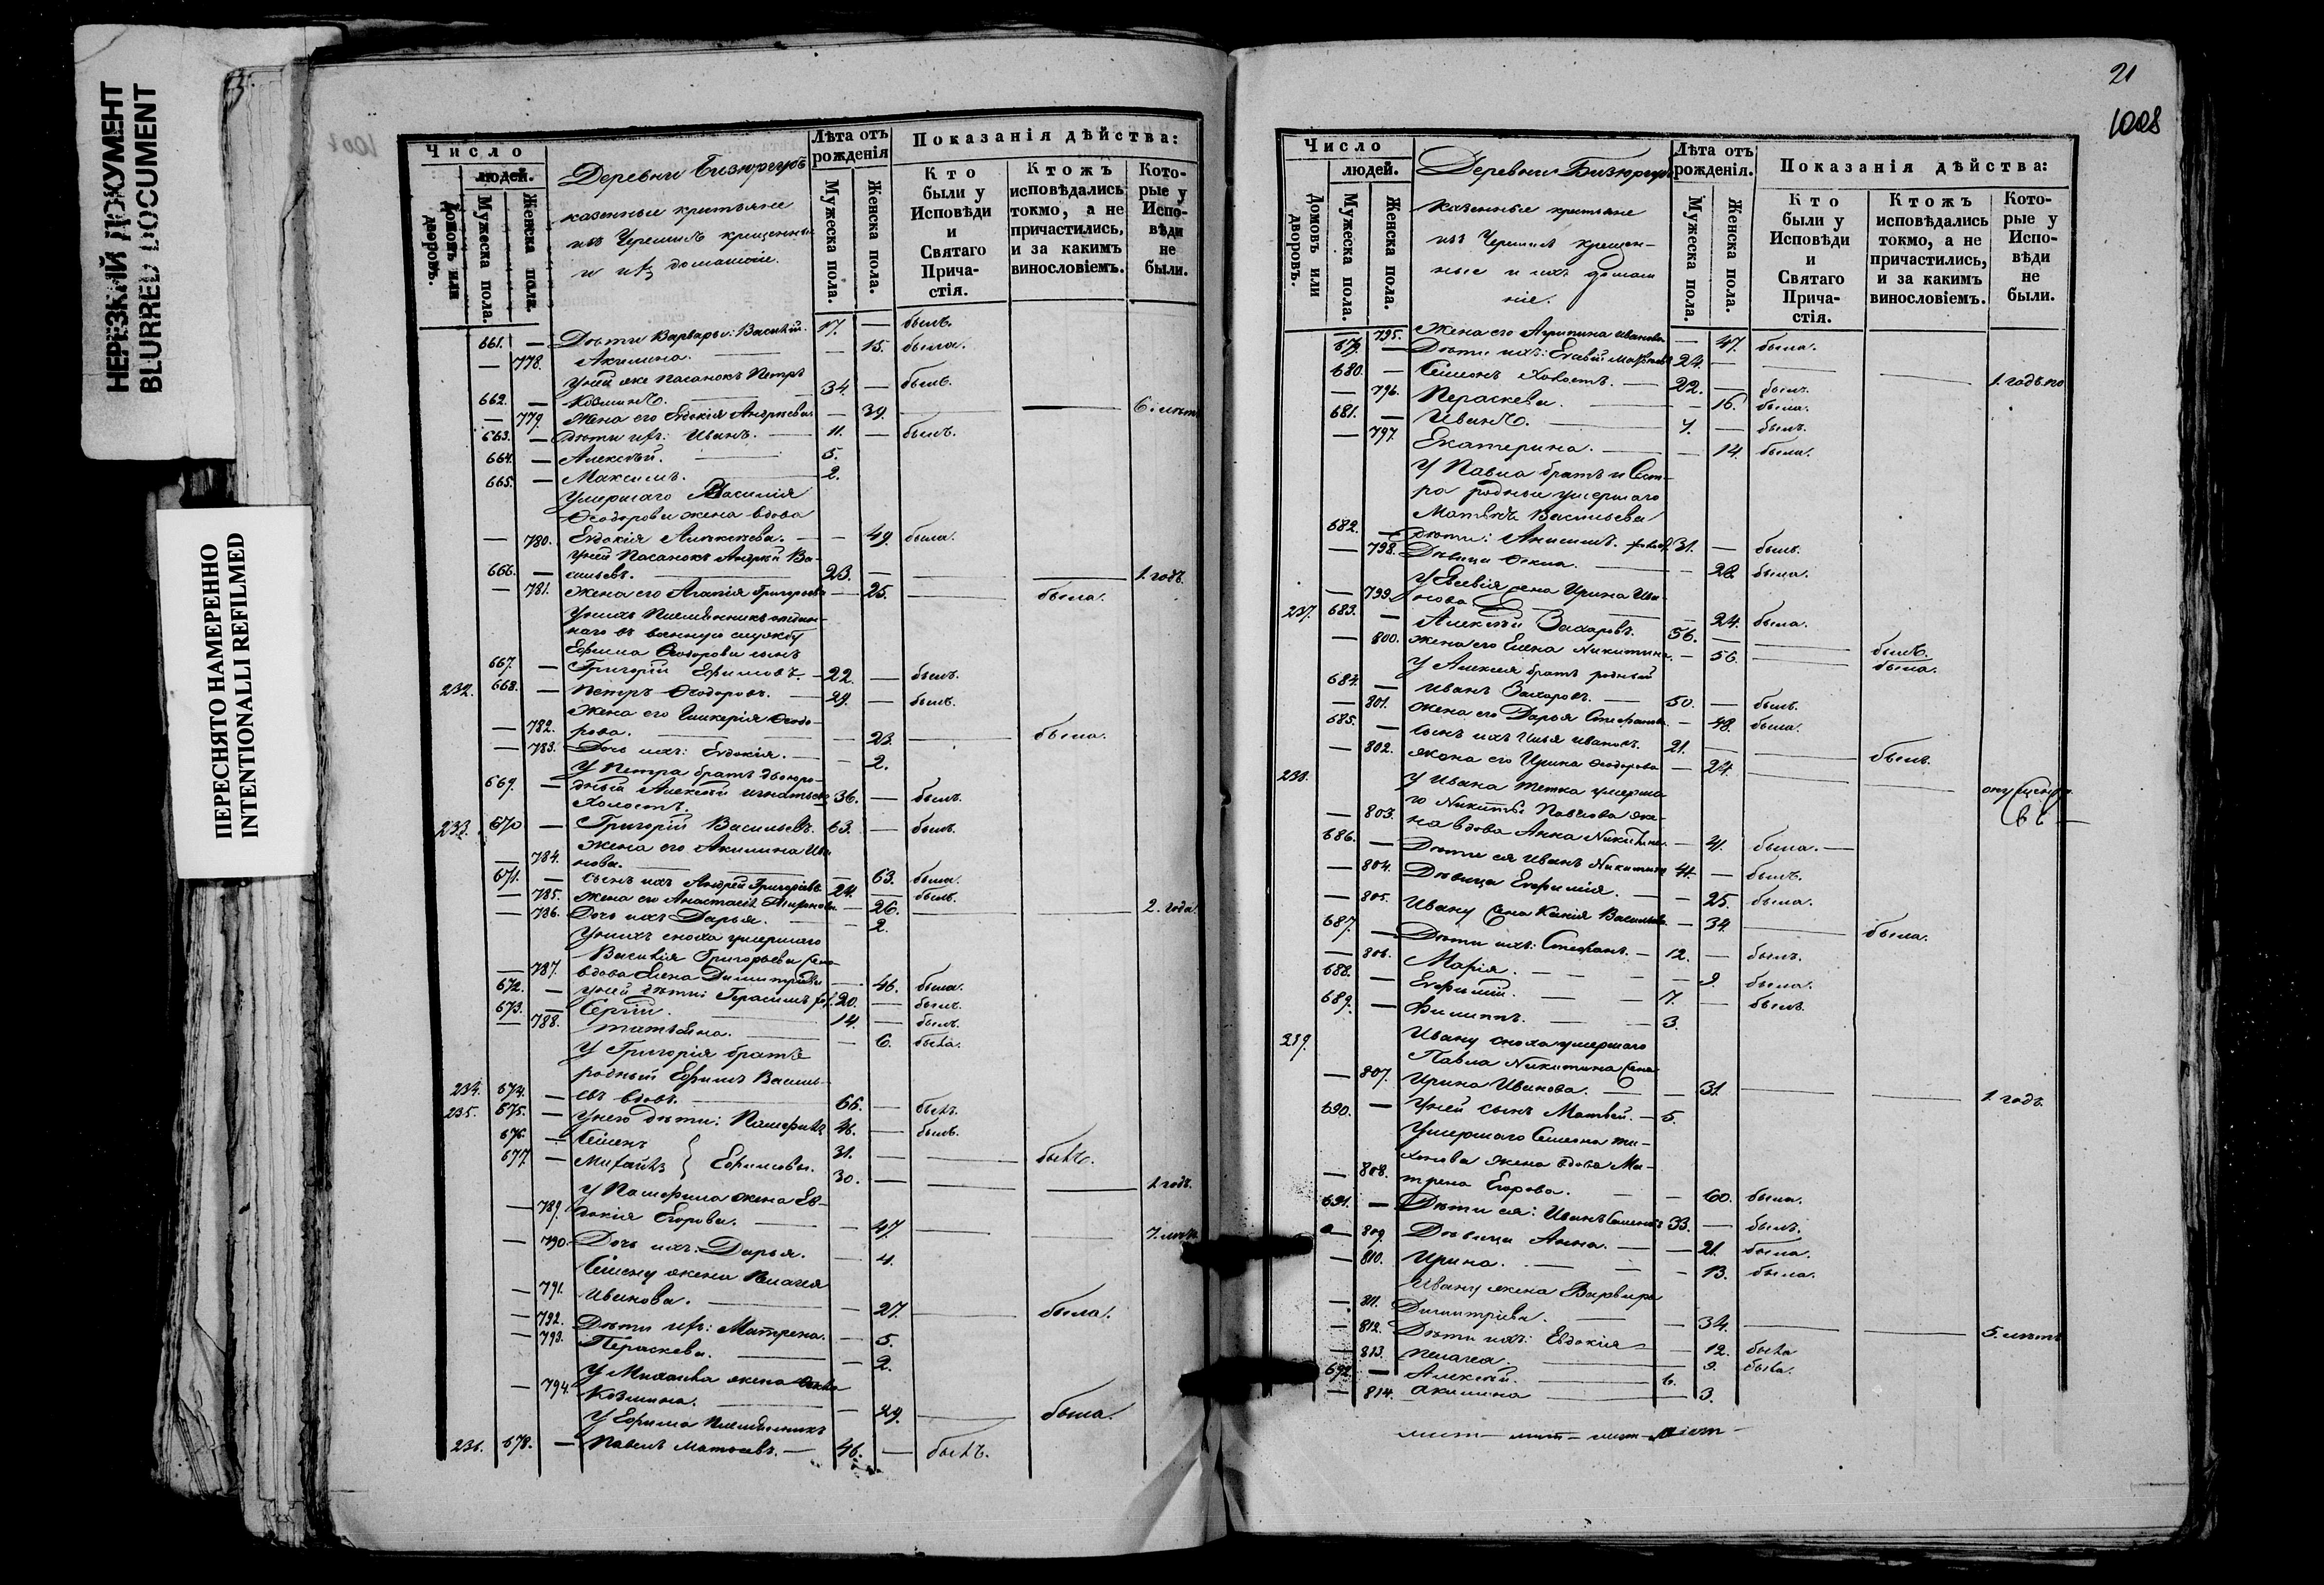 НЕРЕЗКИЙ ДОКУМЕНТ
BLURRED DOCUMENT
ПЕРЕСНЯТО НАМЕРЕННО
INTENTIONALLI REFILMED
Число
людей.
Домовъ или дворовъ.
Мужеска пола.
Женска пола.
Деревни
казенные
изъ Черемисъ крещенные
и ихъ домашніе.
Лѣта отъ рожденія
Мужеска пола.
Женска пола.
Показанія дѣйства:
Кто были у Исповѣди и Святаго Причастія.
Ктожъ исповѣдались токмо, а не причастились, и за какимъ винословіемъ.
Которые у Исповѣди не были.
661. — Дѣти Варвары: Василій. 17. — былъ.
— 778. Акилина. — 15. была.
У ней же пасанокъ Петръ
662. — Козминъ. 34. — былъ.
— 779. Жена его Евдокія Андреева — 39. — — 6. лѣтъ
663. — Дѣти ихъ: Иванъ. 11. — былъ.
664. — Алексѣй. 5.
665. — Максимъ. 2.
Умершаго Василія
Ѳеодорова жена вдова
— 780. Евдокія Алексѣева. — 49. была.
У ней пасанокъ Андрей Ва-
666. — сильевъ. 23. — — — 1. годъ.
— 781. Жена его Агапія Григорьева — 25. — была.
У нихъ племянникъ
наго въ военную службу
Ефима Ѳеодорова сынъ
667. — Григорій Ефимовъ. 22. — былъ.
232. 668. — Петръ Ѳеодоровъ. 29. — былъ.
Жена его Гликерія Ѳеодо-
— 782. рова. — 23. — была.
— 783. Дочь ихъ: Евдокія. — 2.
У Петра братъ двоюро-
669. — дный Алексѣй Игнатьевъ 36. — былъ.
Холостъ.
233. 670 — Григорій Васильевъ. 63. — былъ.
Жена его Акилина Ива
— 784. нова. — 63. была.
671. — Сынъ ихъ Андрей Григорьевъ 24. — былъ.
— 785. Жена его Анастасія — 26. — — 2. года.
— 786. Дочь ихъ Дарья. — 2.
У нихъ сноха умершаго
Василія Григорьева жена
— 787. вдова Елена Димитріева — 46. была.
672. — У ней дѣти: Герасимъ 20. — былъ.
673. — Сергій. 14. — былъ.
— 788. Татьяна. — 6. была.
У Григорія братъ
родный Ефимъ Василь-
234. 674. — евъ вдовъ. 66. — былъ.
235. 675. — У него дѣти: Памфилъ 46. — былъ.
676. — Семенъ 31. — — былъ.
677. — Михаилъ } Ефимовы. 30. — — — 1. годъ.
У Памфила жена Ев-
— 789. докія Егорова. — 47. — — 7. лѣтъ
— 790. Дочь ихъ: Дарья. — 4.
Семену жена Пелагея
— 791. Иванова. — 27. — была.
— 792. Дѣти ихъ: Матрена. — 5.
— 793. Пераскева. — 2.
У Михаила жена
— 794. Козмина. — 29. — была.
У Ефима племянникъ
236. 678. — Павелъ Матвѣевъ. — 46. — былъ.
21
1008
Число
людей.
Домовъ или дворовъ.
Мужеска пола.
Женска пола.
Деревни
Казенные
изъ Черемисъ крещен-
ные и ихъ домаш
ніе.
Лѣта отъ рожденія.
Мужеска пола.
Женска пола.
Показанія дѣйства:
Кто были у Исповѣди и Святаго Причастія.
Ктожъ исповѣдались токмо, а не причастились, и за какимъ винословіемъ.
Которые у Исповѣди не были.
— 795. Жена его Агрипина Иванова — 47. была.
679. — Дѣти ихъ: Евсевій 24. — — — 1. годъ
680. — Симеонъ Холостъ. — 22. — былъ.
— 796. Пераскева. — 16. была.
681. — Иванъ. 7. — былъ.
— 797. Екатерина. — 14. была.
У Павла братъ и Сест-
ра родные умершаго
Матвѣя Васильева
682. — дѣти: Анисимъ. 31. — былъ.
— 798. Дѣвица Ѳекла. — 28. была.
У Евсевія жена Ирина Ива-
— 799. нова — 24. была.
237. 683. — Алексѣй Захаровъ. 56. — — былъ.
— 800. Жена его Елена Никитина. — 56. — была.
У Алексѣя братъ родный
684. — Иванъ Захаровъ. 50. — былъ.
— 801. Жена его Дарья Стефанова — 48. была.
685. — Сынъ ихъ Илья Ивановъ. 21. — — былъ.
— 802. Жена его Ирина Ѳеодорова — 24.
238. У Ивана тетка умерша
го Никиты Павлова же-
— 803. на вдова Анна Никитина. — 41. была. —
686. — Дѣти ея Иванъ Никитинъ — былъ.
— 804. Дѣвица Евфимія. — 25. была.
— 805. Ивану жена Васильева — 34. — была.
687. — Дѣти ихъ: Стефанъ. — 12. — былъ.
— 806. Марія. — 9. была.
688. — Евфимій. 7. — былъ.
689. — Филиппъ. 3.
239. Ивану сноха умершаго
Павла Никитина жена
— 807. Ирина Иванова. — 31. — — 1. годъ.
690. — У ней сынъ Матвѣй. — 5.
Умершаго Семена Ти-
хонова жена вдова Ма-
— 808. трена Егорова. — 60. была.
691. — Дѣти ея: Иванъ Семеновъ 33. — былъ.
— 809. Дѣвица Анна. — 21. была.
— 810. Ирина. — 13. была.
Ивану жена Варвара
— 811. Димитріева. — 34. — — 5. лѣтъ
— 812. Дѣти ихъ: Евдокія — 12. была
— 813. Пелагея. — 9. была.
692 — Алексѣй. 6.
— 814. Акилина — 3.